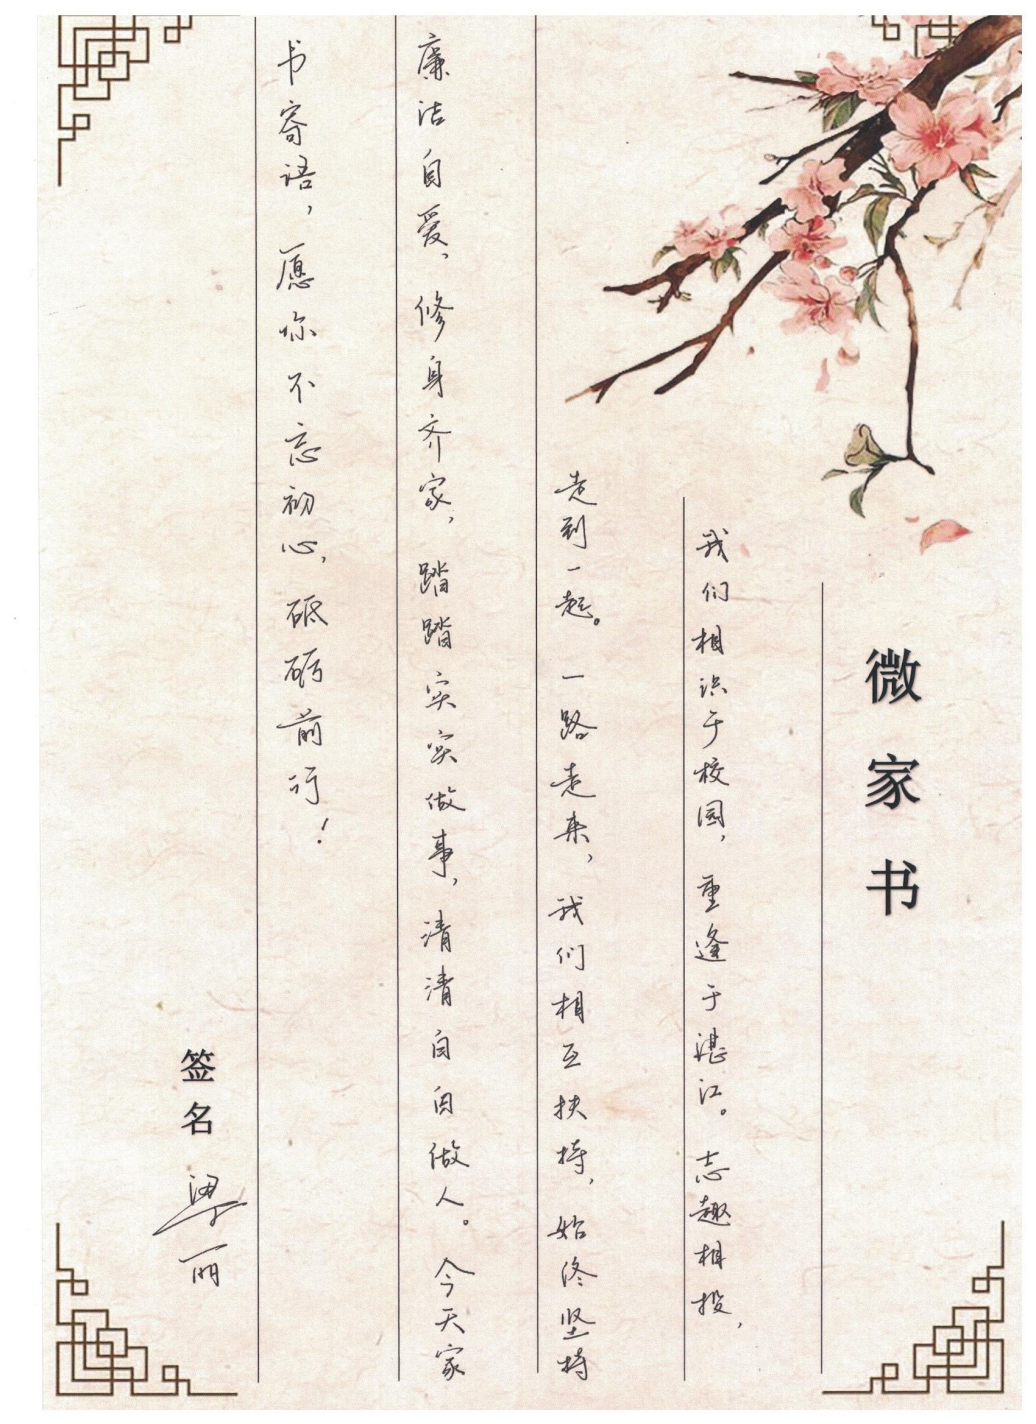 微家书
我们相识于校园，重逢于湛江。志趣相投，
走到一起。一路走来，我们相互扶持，始终坚持
廉洁自爱、修身齐家，踏踏实实做事，清清白白做人。今天家
书寄语，愿你不忘初心，砥砺前行！
签名 梁丽